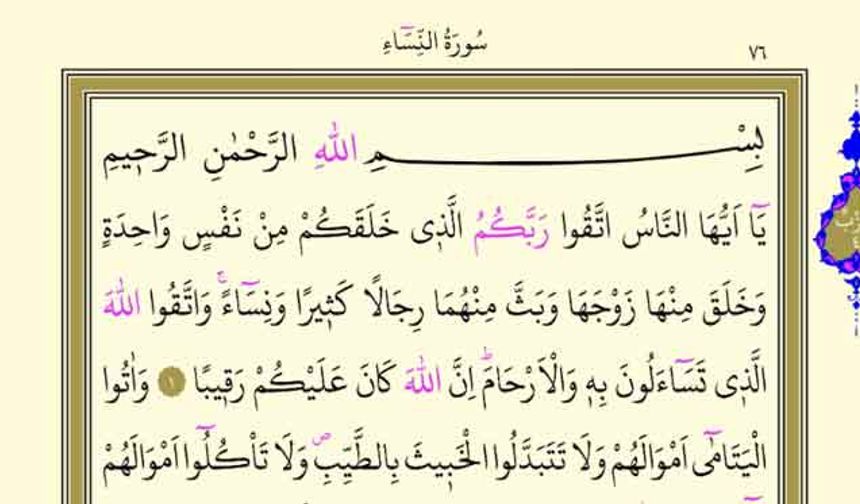 سُورَةُ النِّسَٓاءِ
٧٦
بِسْمِ اللّٰهِ الرَّحْمٰنِ الرَّح۪يمِ
يَٓا اَيُّهَا النَّاسُ اتَّقُوا رَبَّكُمُ الَّذ۪ى خَلَقَكُمْ مِنْ نَفْسٍ وَاحِدَةٍ
وَخَلَقَ مِنْهَا زَوْجَهَا وَبَثَّ مِنْهُمَا رِجَالًا كَث۪يرًا وَنِسَٓاءًۚ وَاتَّقُوا اللّٰهَ
الَّذ۪ى تَسَٓاءَلُونَ بِه۪ وَالْاَرْحَامَۜ اِنَّ اللّٰهَ كَانَ عَلَيْكُمْ رَق۪يبًا ١ وَاٰتُوا
الْيَتَامٰٓى اَمْوَالَهُمْ وَلَا تَتَبَدَّلُوا الْخَب۪يثَ بِالطَّيِّبِۖ وَلَا تَاْكُلُٓوا اَمْوَالَهُمْ